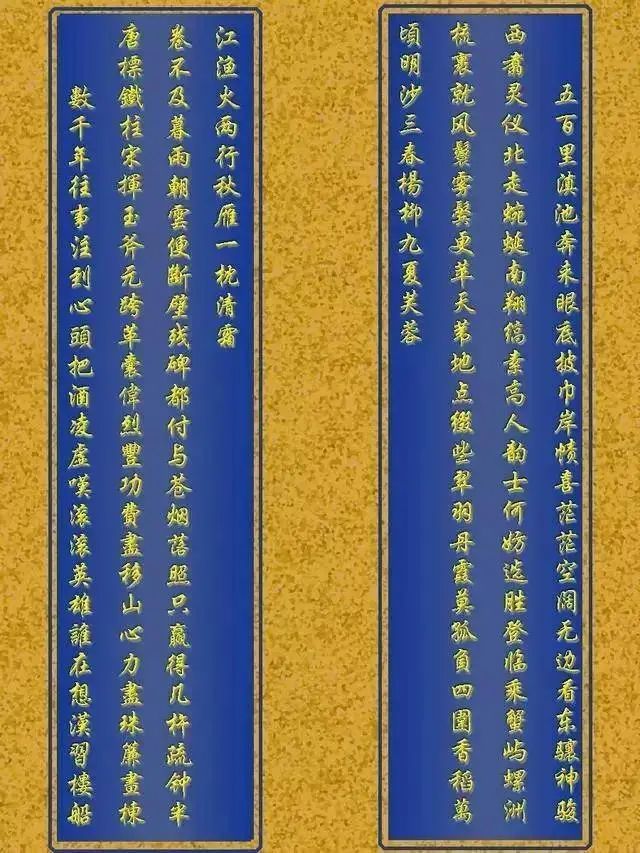 五百里滇池奔来眼底披巾岸帻喜茫茫空阔无边看东骧神骏
西翥灵仪北走蜿蜒南翔缟素高人韵士何妨选胜登临乘蟹屿螺洲
梳裹就风鬟雾鬓更苹天苇地点缀些翠羽丹霞莫孤负四圍香稻萬
頃明沙三春楊柳九夏芙蓉
數千年往事注到心頭把酒凌虛嘆滚滚英雄誰在想漢習樓船
唐標鐵柱宋揮玉斧元跨革囊偉烈豐功費盡移山心力盡珠簾畫棟
卷不及暮雨朝雲便斷壁残碑都付与苍烟落照只赢得几杵疏钟半
江渔火两行秋雁一枕清霜